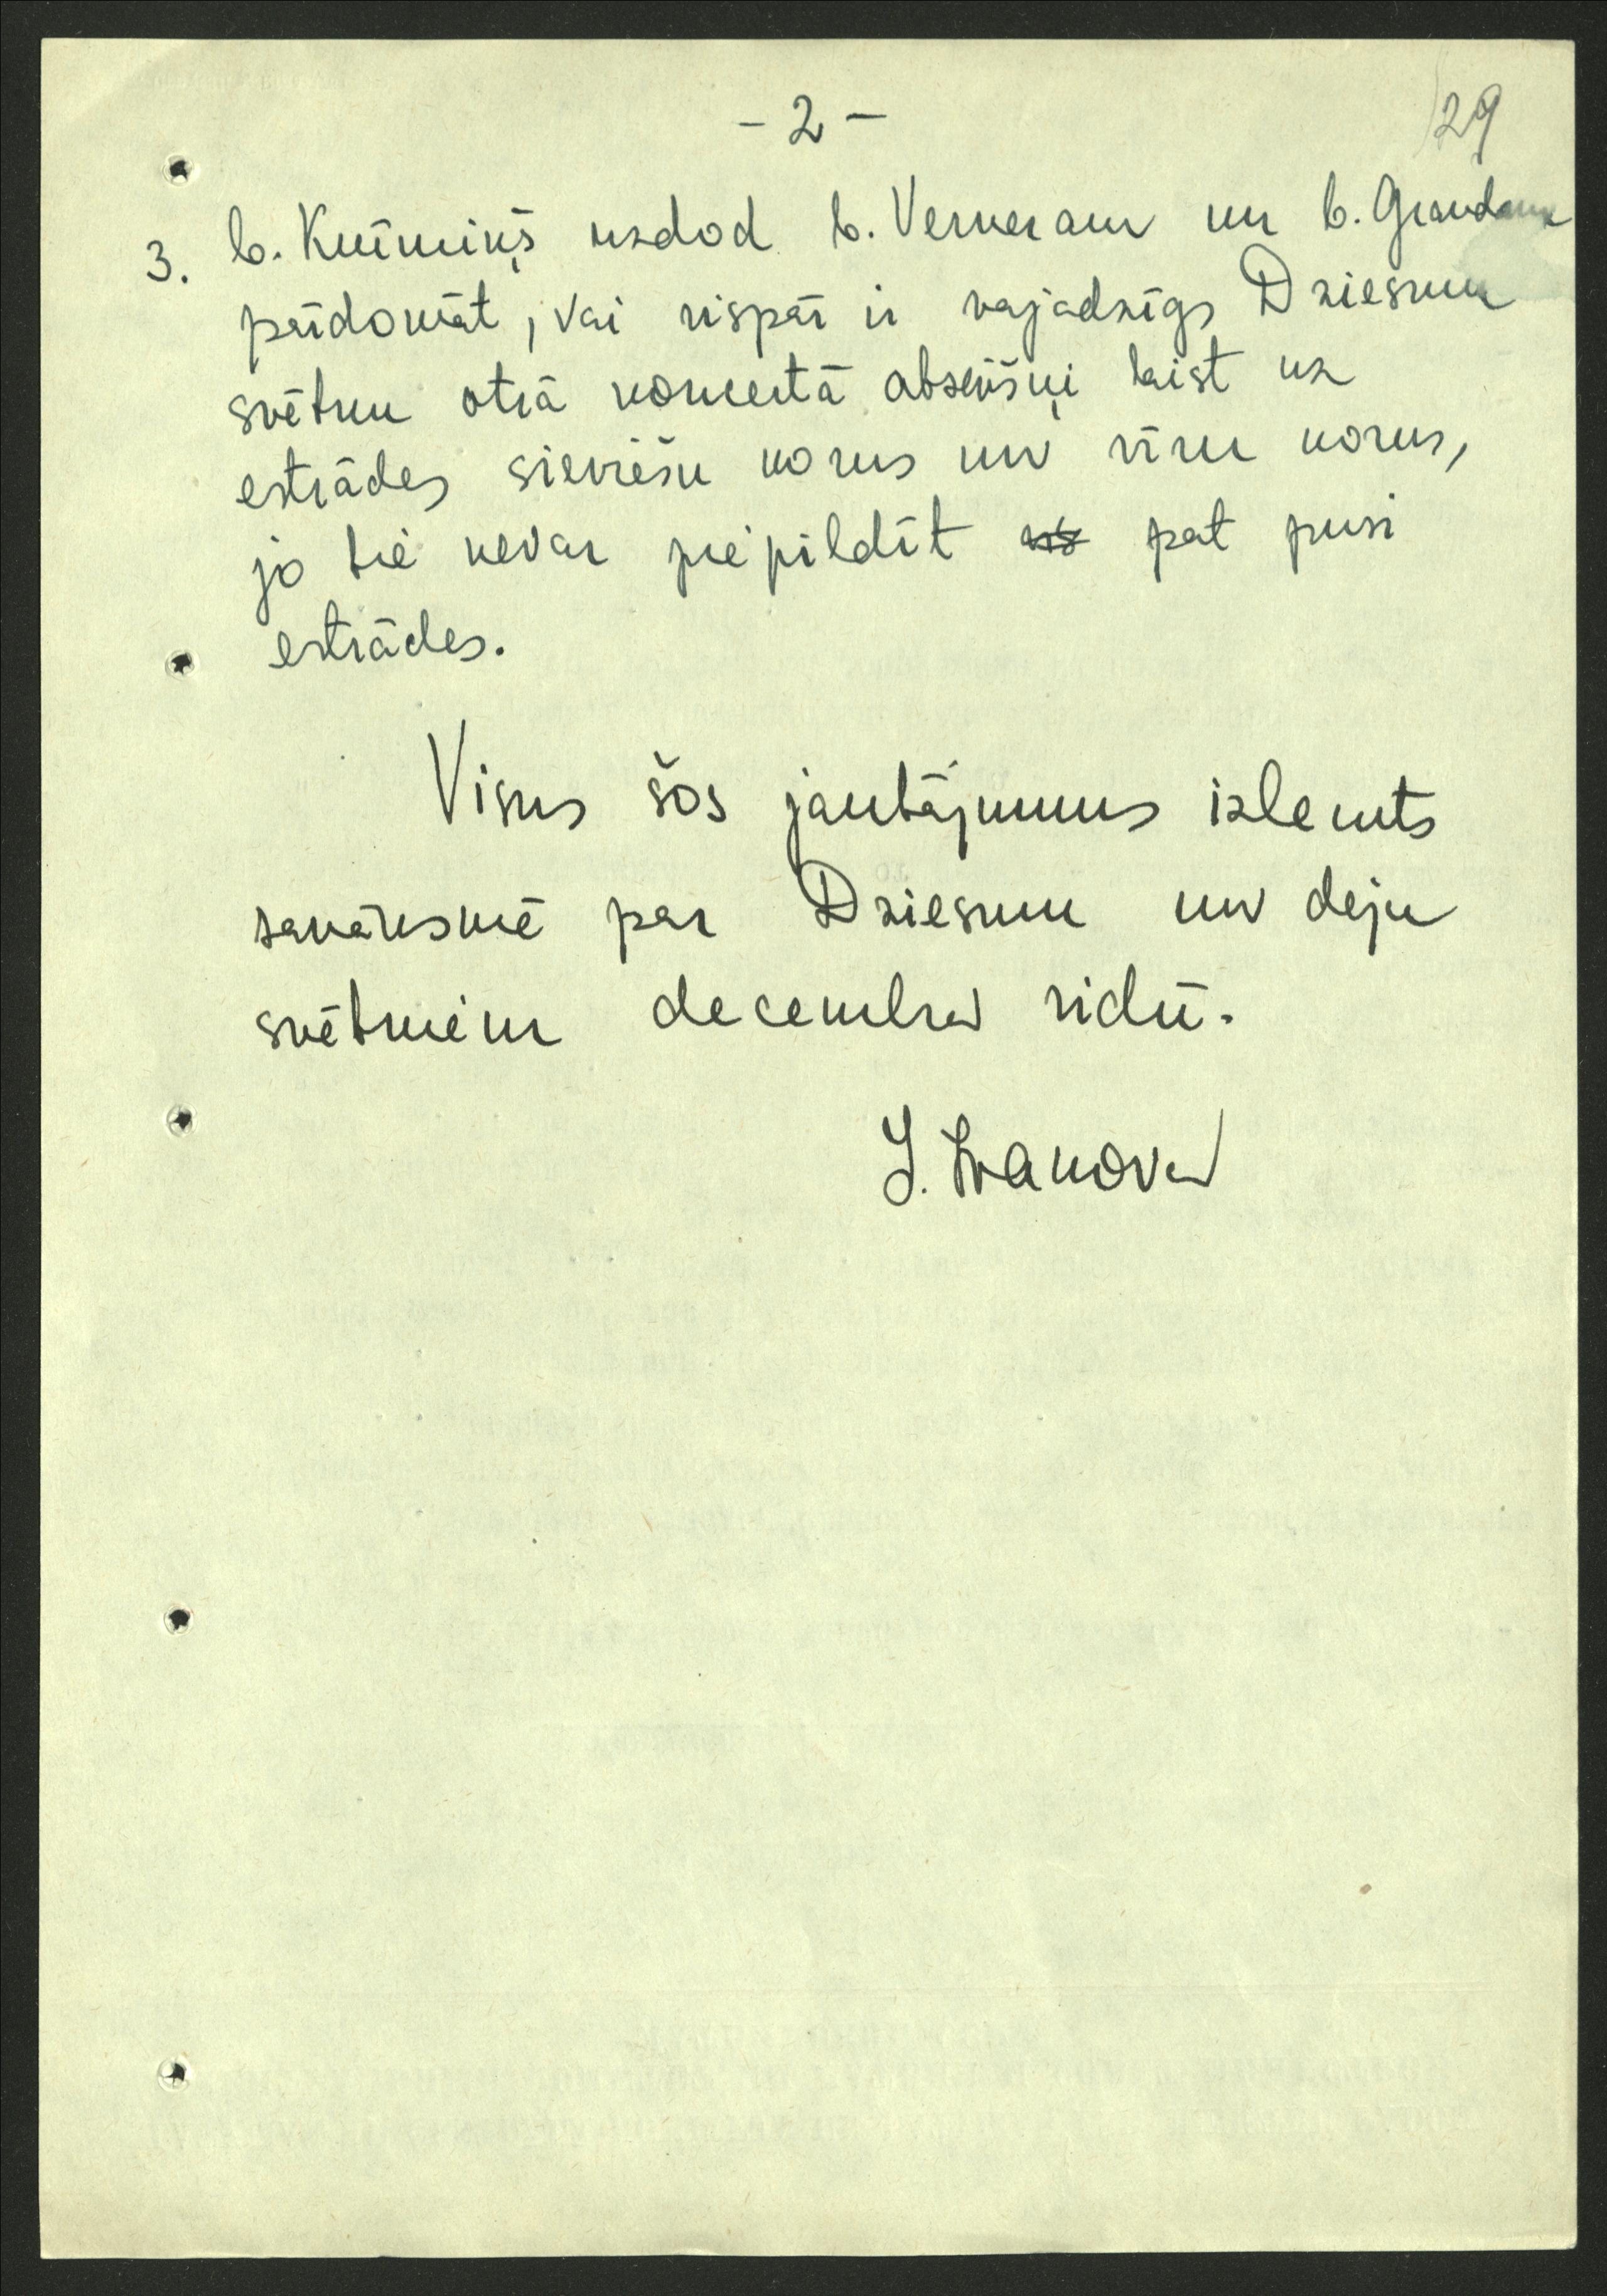 - 2 -
29
3. b. Kuímiņš uzdod b. Verneram un b. Graudam
pārdomāt, vai vispār ir vajadzīgs Dziesmu
svētku otrā koncertā atsevišķi laist uz
estrādes sieviešu korus un vīru korus,
jo tie nevar piepildīt pat pusi
estrādes.
Visus šos jautājumus izlemts
sanāksmē par Dziesmu un deju
svētkiem decembra vidū.
I. Ivanova